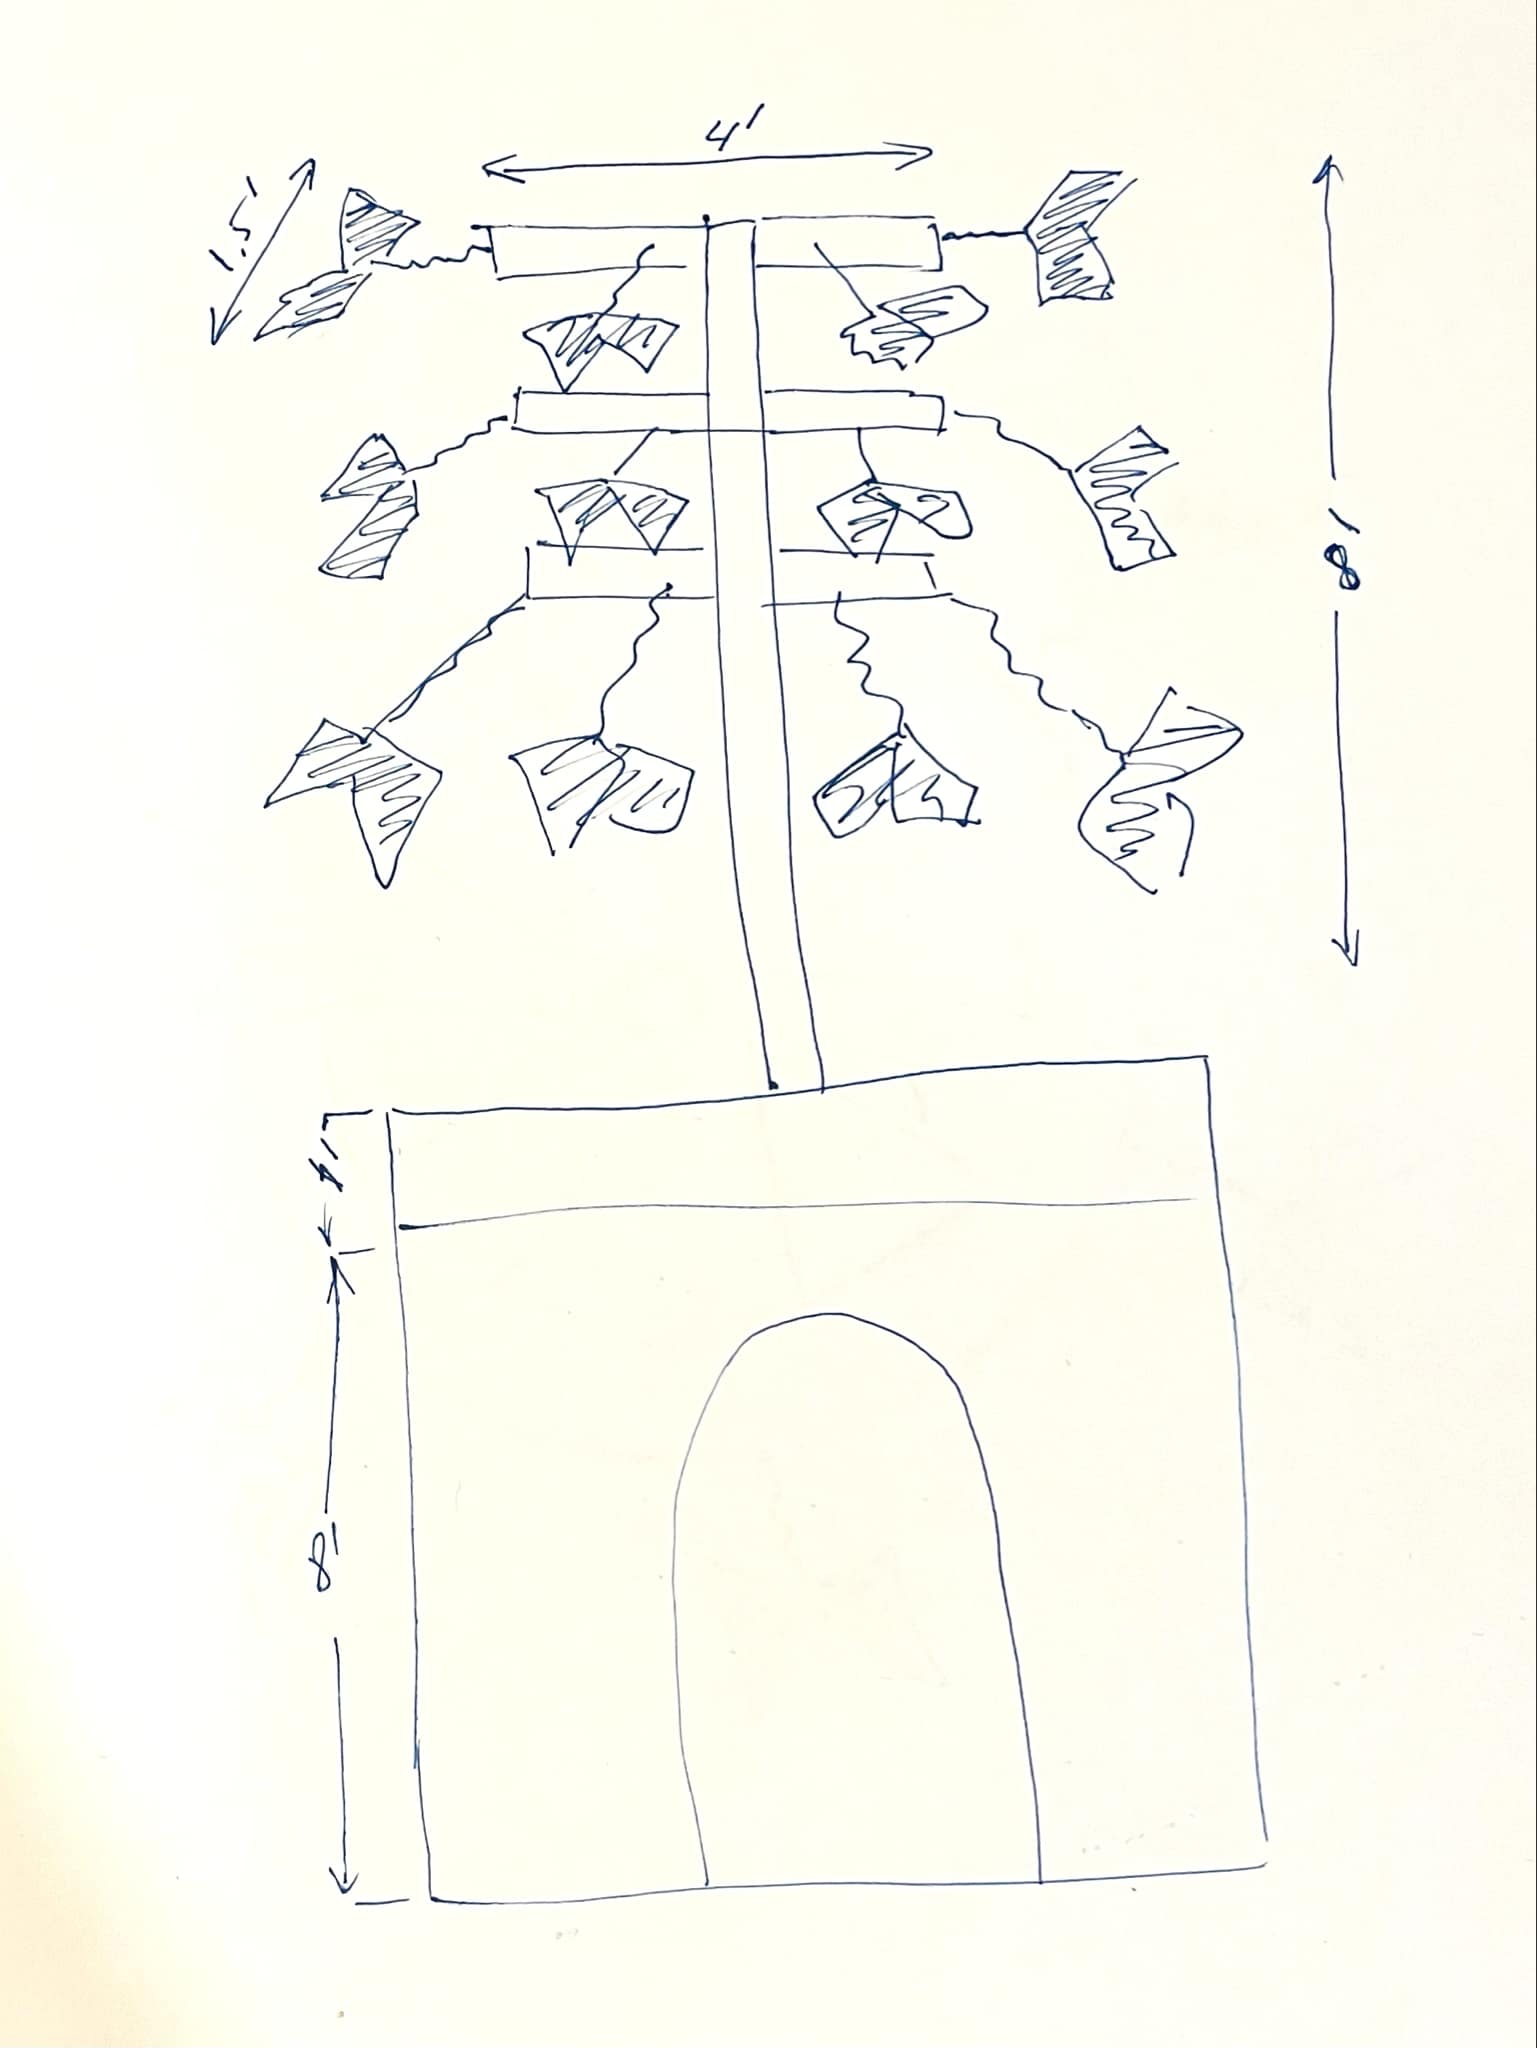 4'
1.5'
8'
4'
8'